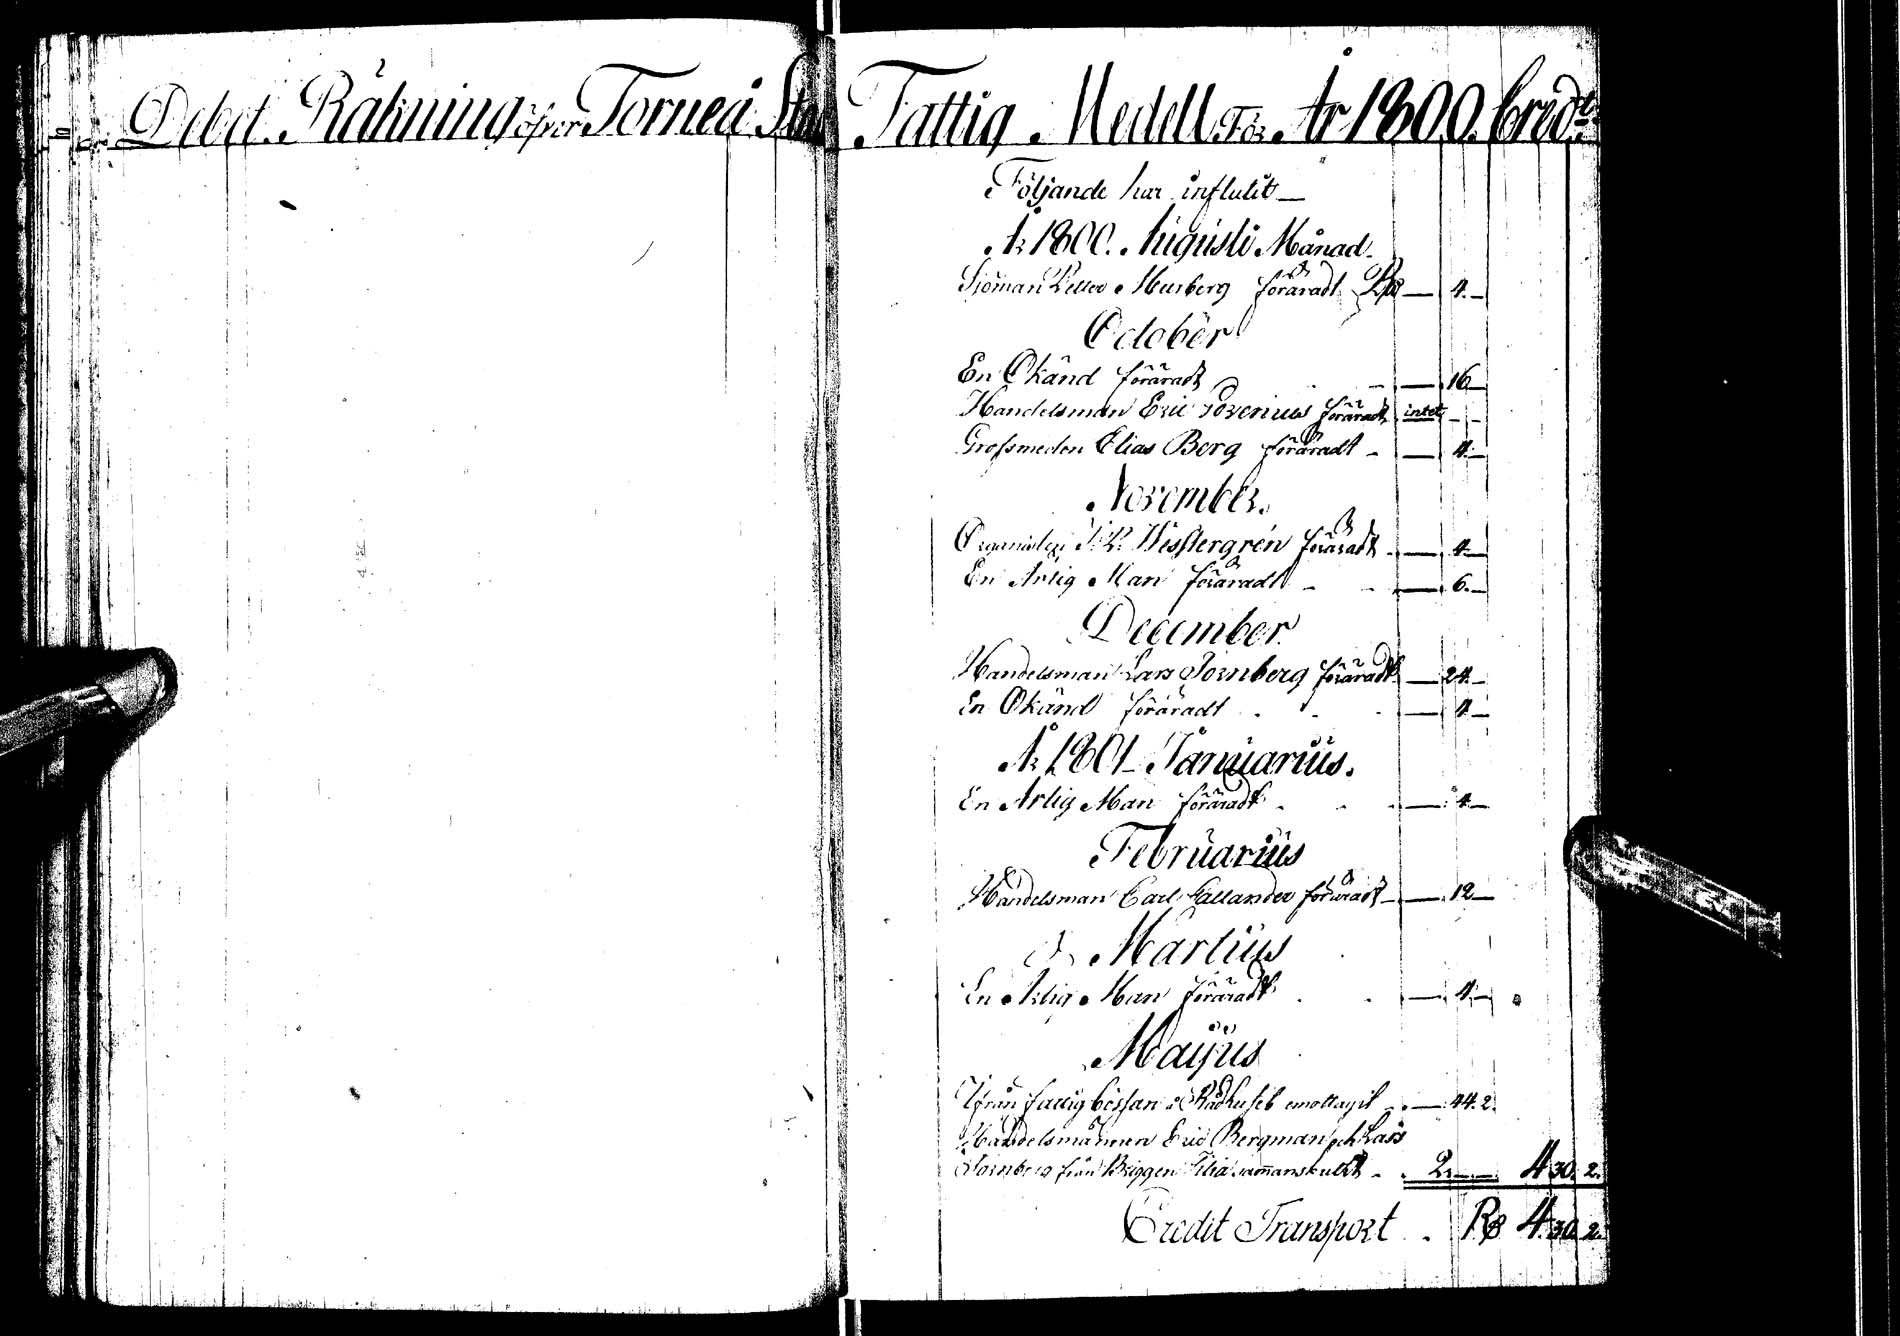 Debet. Räkning öfver Torneå Stads Fattig Medell För År 1800. Credt.
Följande har influtit —
År 1800. Augusti Månad.
Sjöman Petter Murberg föräradt Rd — 4. —
October
En Okänd föräradt — 16 —
Handelsman Eric föräradt intet — —
Grofsmeden Elias Berg föräradt — — 4. —
November.
Organisten Westergrén föräradt — — 4. —
En Ärlig Man föräradt — — 6. —
December.
Handelsman Lars Tornberg föräradt — 24. —
En Okänd föräradt — 4 —
År 1801 — Januarius.
En Ärlig Man föräradt — 4 —
Februarius
Handelsman Carl föräradt — — 12 —
Martius
En Ärlig Man föräradt — 4. —
Maijus
Ifrån fattig bössan å Rådhuset emottagit — — 44. 2.
Handelsmännen Eric Bergman och Lars
Tornberg från Briggen sammanskutit — 2. — — 4 30. 2.
Credit Transport . Rd 4. 30. 2.